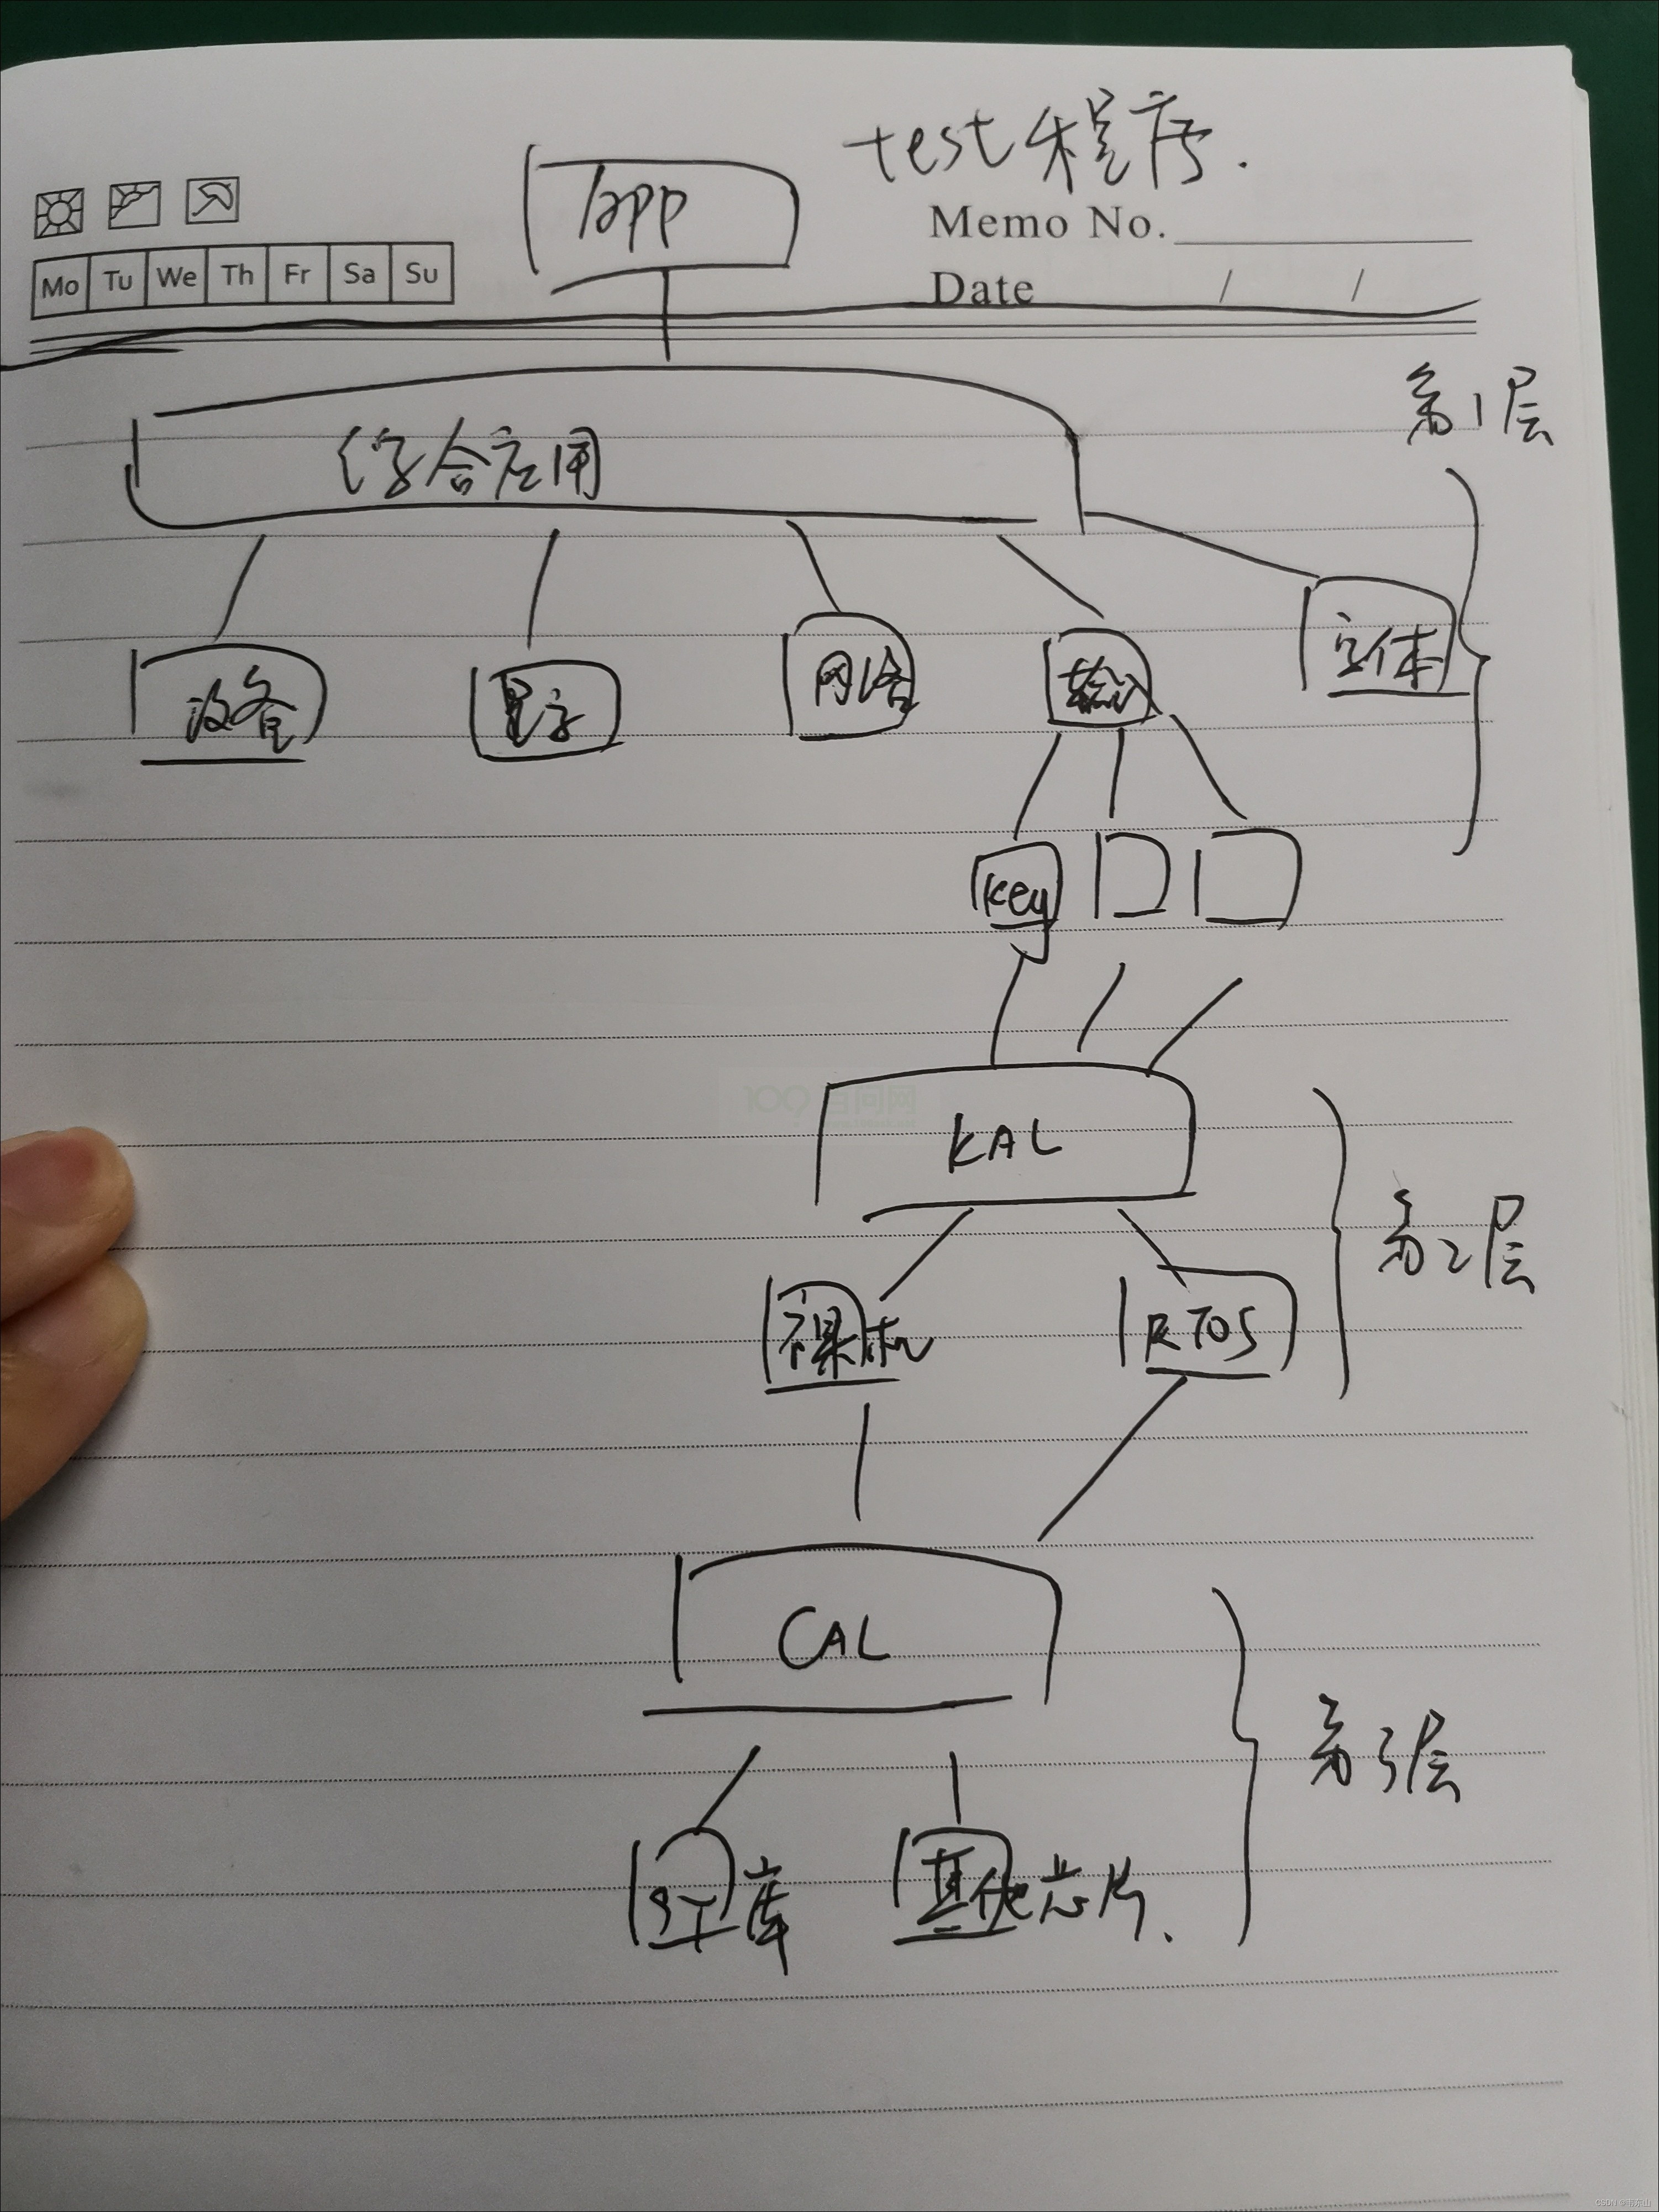 test程序.
app
Memo No.
Mo Tu We Th Fr Sa Su
Date / /
第1层
综合应用
设备 显示 网络 输入 字体
key
KAL
第2层
裸机 RTOS
CAL
第3层
ST库 其他芯片.
CSDN @韦东山